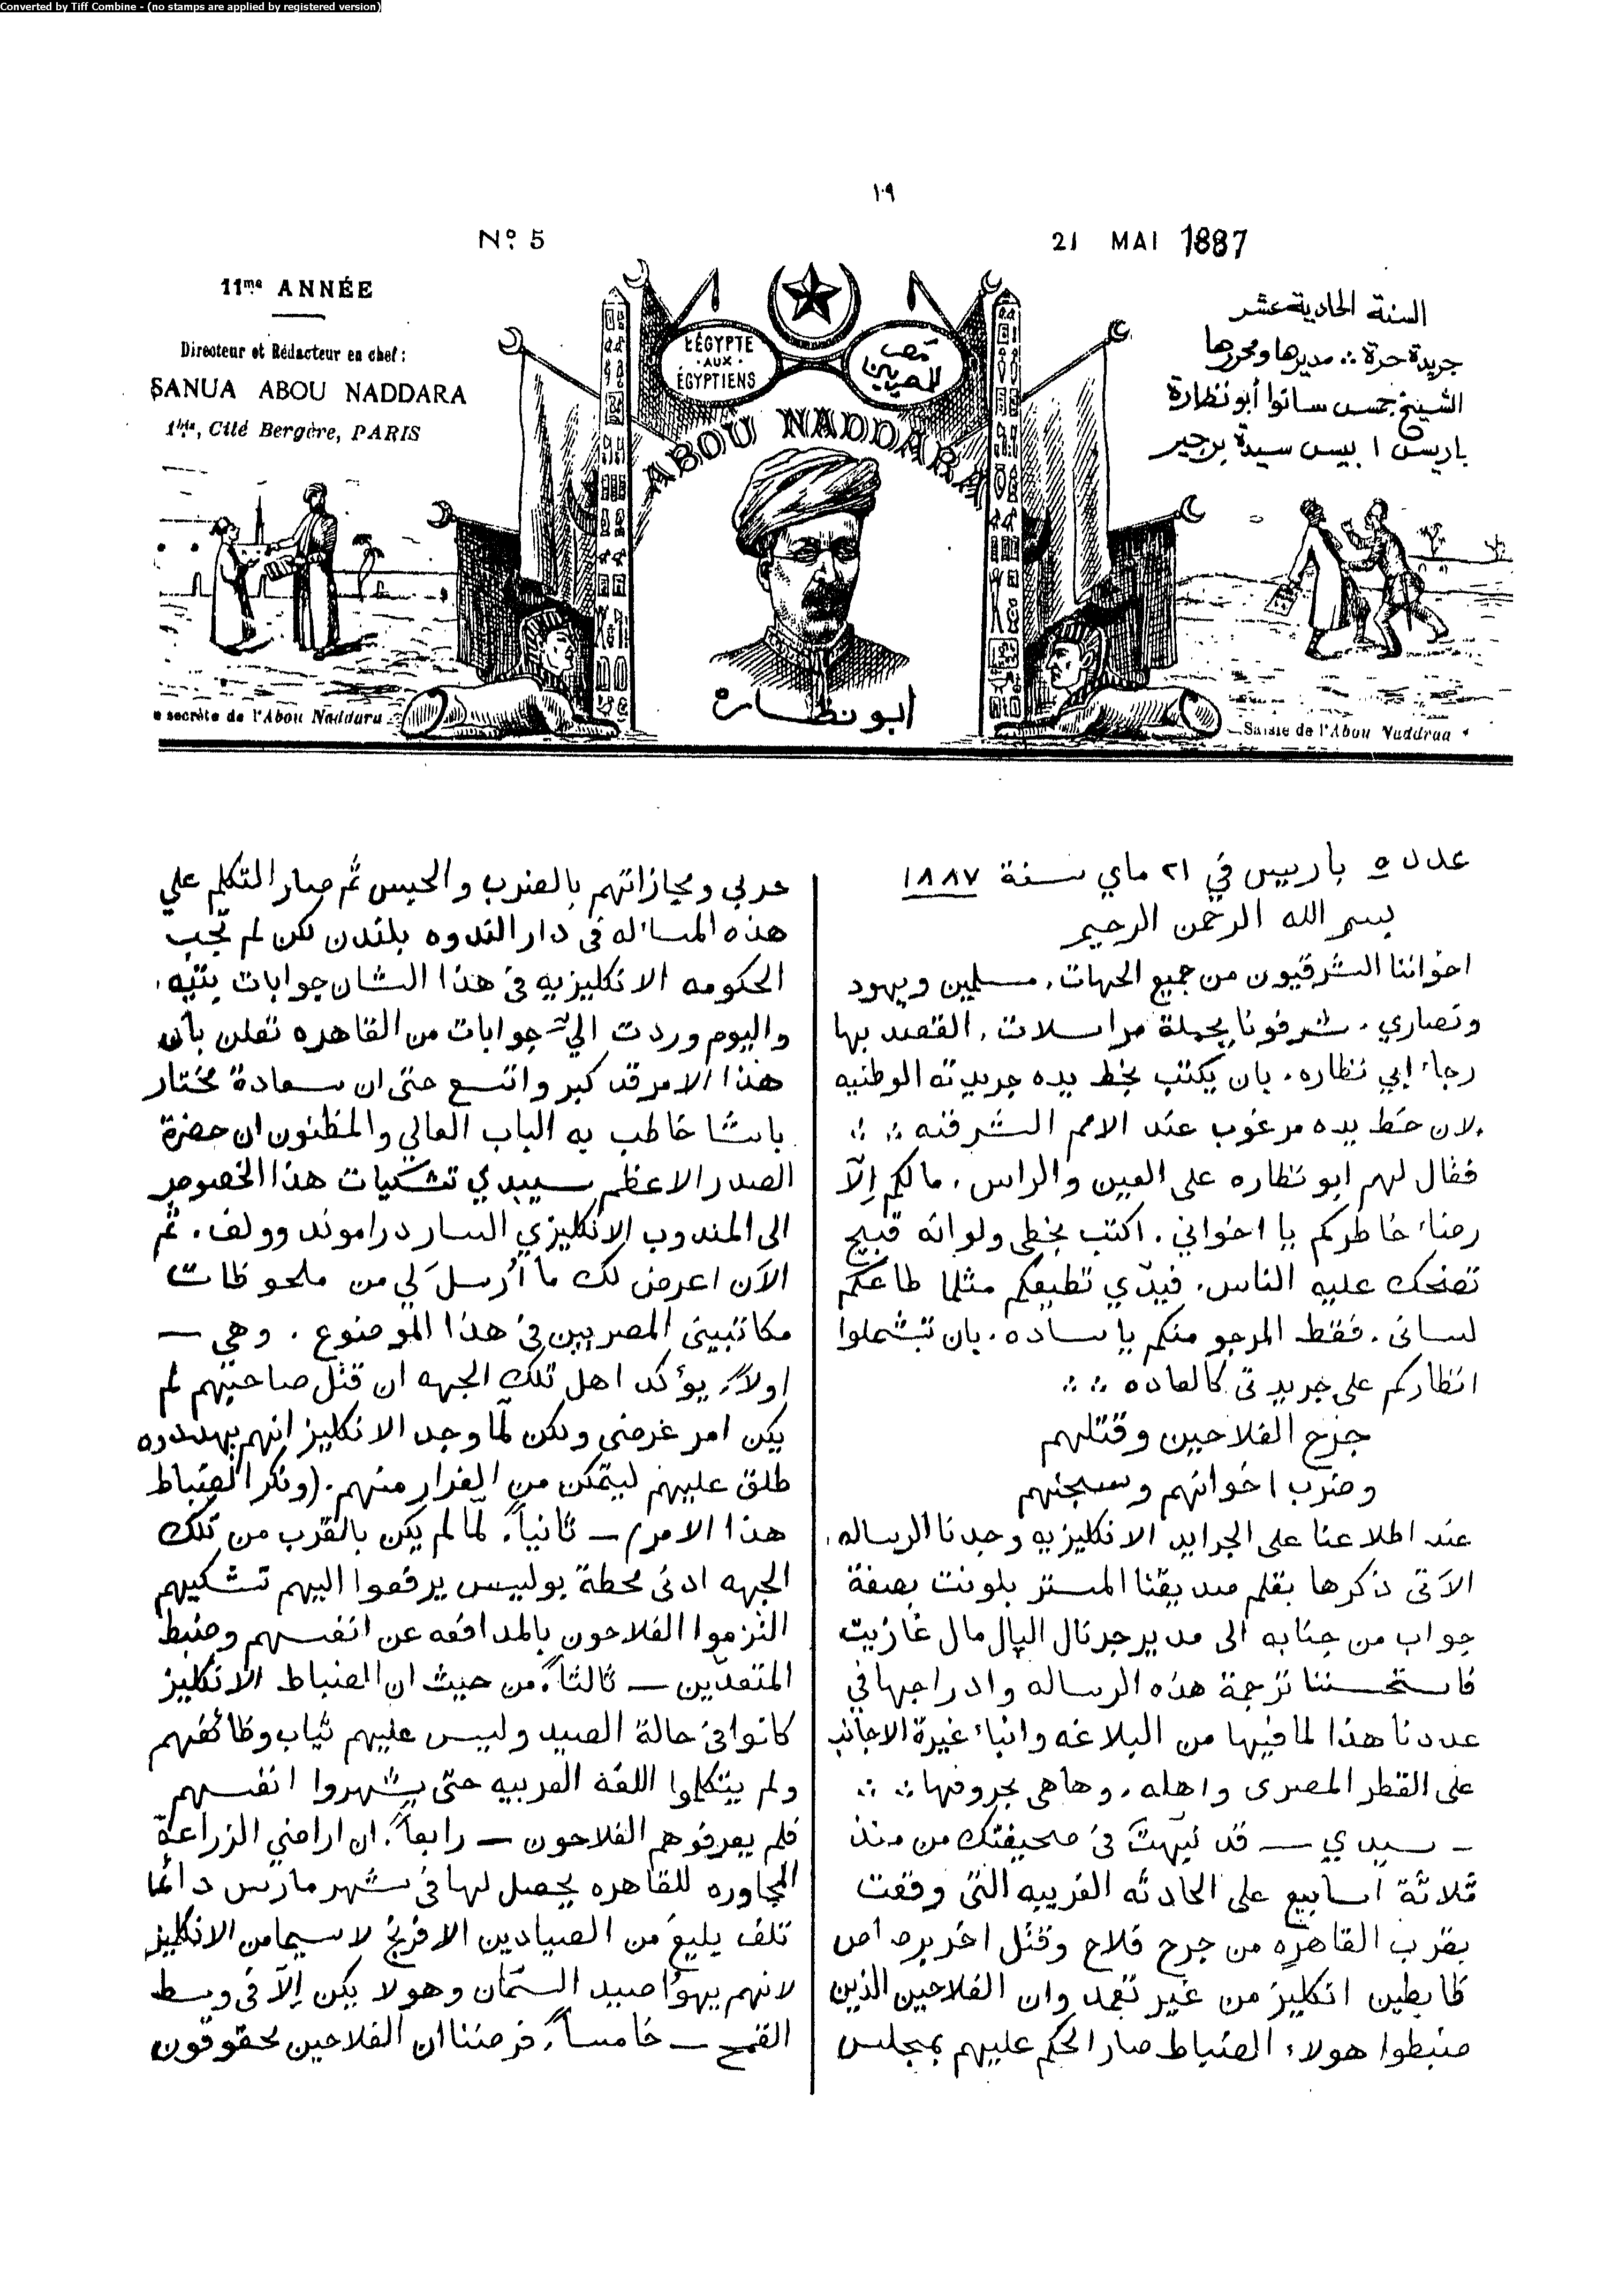 Converted by Tiff Combine - (no stamps are applied by registered version)
١٠٩
Nº. 5
21 MAI 1887
11me ANNÉE
Directeur et Rédacteur en chef :
SANUA ABOU NADDARA
1bis, Cité Bergère, PARIS
L'ÉGYPTE
AUX
ÉGYPTIENS
مصر
للمصريين
ABOU NADDARA
السنة الحادية عشر
جريدة حرة ∴ مديرها ومحررها
الشيخ جمس سانوا أبو نظارة
باريس ١ بيس سيدة برجير
e secrète de l'Abou Naddara
ابو نظاره
Saisie de l'Abou Naddraa
عدد ٥ باريس في ٢١ ماي سنة ١٨٨٧
بسم الله الرحمن الرحيم
اخواننا الشرقيون من جميع الجهات. مسلمين ويهود
ونصاري. شرفونا بجملة مراسلات. القصد بها
رجاء ابي نظاره. بان يكتب بخط يده جريدته الوطنيه
لان خط يده مرغوب عند الامم الشرقيه ∴ ∴
فقال لهم ابو نظاره على العين والراس. مالكم إلّا
رضاء خاطركم يا اخواني. اكتب بخطي ولو انه قبيح
تضحك عليه الناس. فيدّي تطيعكم مثلما طاعكم
لسانى. فقط المرجو منكم يا ساده. بان تشملوا
انظاركم على جريدتى كالعاده ∴ ∴
جرح الفلاحين وقتلهم
وضرب اخوانهم وسجنهم
عند اطلاعنا على الجرايد الانكليزيه وجدنا الرساله
الآتى ذكرها بقلم صديقنا المستر بلونت بصفة
جواب من جنابه الى مدير جرنال البال مال غازيت
فاستحسننا ترجمة هذه الرساله وادراجها في
عددنا هذا لما فيها من البلاغه وانباء غيرة الاجانب
على القطر المصرى واهله. وها هى بحروفها ∴ ∴
ـ سيدي ـ قد نبّهتَ فى صحيفتك من منذ
ثلاثة اسابيع على الحادثه الغريبه التى وقعت
بقرب القاهره من جرح فلاح وقتل اخر برصاص
ظابطين انكليز من غير تعمد وان الفلاحين الذين
ضبطوا هولاء الضباط صار الحكم عليهم بمجلس
حربي ومجازاتهم بالضرب والحبس ثم صار التكلم علي
هذه المساله فى دار الندوه بلندن لكن لم تجب
الحكومه الانكليزيه فى هذا الشان جوابات بتيه.
واليوم وردت اليّ جوابات من القاهره تعلن بان
هذا الامر قد كبر واتسع حتى ان سعادة مختار
باشا خاطب به الباب العالي والمظنون ان حضرة
الصدر الاعظم سيبدي تشكيات هذا الخصوص
الى المندوب الانكليزي السار دراموند وولف. ثم
الآن اعرض لك ما أُرسلَ لي من ملحوظات
مكاتبينى المصريين فى هذا الموضوع. وهي ـ
اولاً. يؤكد اهل تلك الجهه ان قتل صاحبهم لم
يكن امر غرضي ولكن لمّا وجد الانكليز انهم يهددوه
طلق عليهم ليتمكن من الفرار منهم. (ونكر الضباط
هذا الامر) ـ ثانياً. لمّا لم يكن بالقرب من تلك
الجهه ادنى محطة بوليس يرفعوا اليهم تشكيهم
التزموا الفلاحون بالمدافعه عن انفسهم وضبط
المتعدّيين ـ ثالثاً. من حيث ان الضباط الانكليز
كانوا فى حالة الصيد وليس عليهم ثياب وظائفهم
ولم يتكلموا اللغة العربيه حتى يشهروا انفسهم
فلم يعرفوهم الفلاحون ـ رابعاً. ان اراضي الزراعة
المجاوره للقاهره يحصل لها فى شهر مارس دائما
تلف بليغ من الصيادين الافرنج لا سيما من الانكليز
لانهم يهوُا صيد السمّان وهو لا يكن إلّا فى وسط
القمح ـ خامساً. فرضنا ان الفلاحين محقوقون